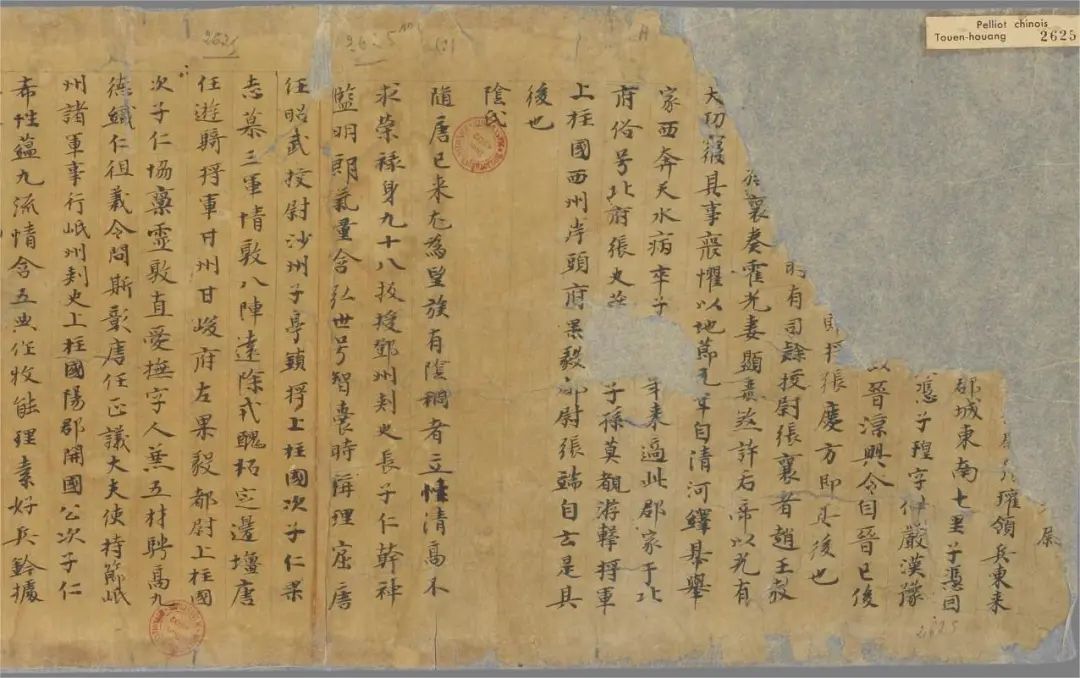 Pelliot chinois
Touen-houang 2625
2621
2625
璀領兵東来
郡城東南七里子憑因
憑子瑝字仲嚴漢豫
晉涼興令自晉已後
擇張慶方即其後也
有司隸挍尉張襄者趙王敖
襄奏霍光妻顯毒煞許后帝以光有
大功寢其事襄懼以地節元年自清河繹幕舉
家西奔天水病卒子 年来適此郡家于北
府俗号北府張史 子孫莫覩游擊將軍
上柱國西州岸頭府果毅都尉張端自云是其
後也
陰氏
隨唐已来尤為望族有陰稠者立性清高不
求榮祿身九十八扳授鄧州刾史長子仁幹神
監明朗氣量含弘世号智囊時稱理窟唐
任昭武挍尉沙州子亭鎮將上柱國次子仁果
志慕三軍情敦八陣遠除戎醜拓定邊壃唐
任遊騎將軍甘州甘峻府左果毅都尉上柱國
次子仁協稟靈敦直愛撫字人無五材騁高九
德鐵仁祖義令問斯彰唐任正議大夫使持節岷
州諸軍事行岷州刾史上柱國陽郡開國公次子仁
希性蘊九流情含五典任牧能理素好兵鈐據
2625